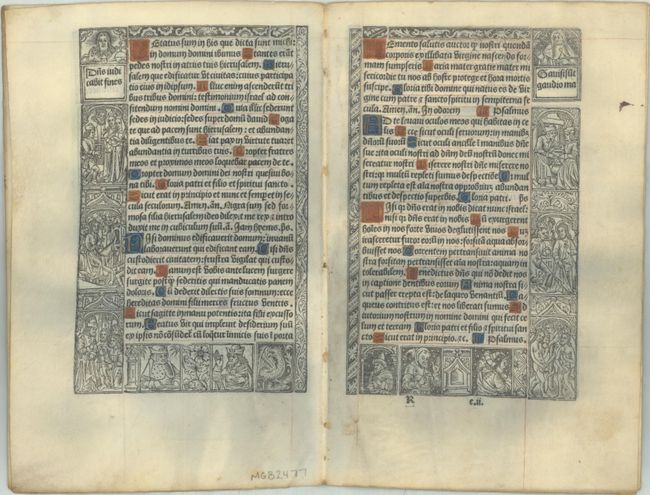 Dn̄s iudi
cabit fines
Letatus sum in his que dicta sunt michi:
in domum domini ibimus Stantes erāt
pedes nostri in atriis tuis hierusalem. Hieru-
salem que edificatur vt ciuitas: cuius participa-
tio eius in idipsum. Illuc enim ascenderūt tri-
bus tribus domini: testimonium israel ad con-
fitendum nomini domini. Quia illic sederunt
sedes in iudicio: sedes super domū dauid Roga-
te que ad pacem sunt hierusalem: et abundan-
tia diligentibus te. Fiat pax in virtute tua: et
abundantia in turribus tuis. Propter fratres
meos et proximos meos loquebar pacem de te.
Propter domum domini dei nostri quesiui bo-
na tibi. Gloria patri et filio et spiritui sancto.
Sicut erat in principio et nunc et semper et in se-
cula seculorum. Amen. añ. Nigra sum sed for-
mosa filia hierusalem ideo dilexit me rex et intro
duxit me in cubiculum suū. ps.
Nisi dominus edificauerit domum: inuanū
laborauerunt qui edificant eam. Nisi dn̄s
custodierit ciuitatem: frustra vigilat qui custo-
dit eam. Uanum est vobis ante lucem surgere
surgite postq̄ sederitis qui manducatis panem
doloris. Cū dederit dilectis suis somnum: ecce
hereditas domini filii merces fructus ventris.
Sicut sagitte in manu potentis: ita filii excusso-
rum. Beatus vir qui impleuit desiderium suū
ex ipsis nō cōfūdet̄ cū loq̄tur inimicis suis ī porta
Memento salutis auctor q̄ nostri quondā
corporis ex illibata virgine nascendo for-
mam sumpseris Maria mater gratie mater mi-
sericordie tu nos ab hoste protege et hora mortis
suscipe. Gloria tibi domine qui natus es de vir-
gine cum patre et sancto spiritu in sempiterna se-
cula. Amen. añ. In odorem Psalmus
Ad te leuaui oculos meos qui habitas in ce-
lis Ecce sicut oculi seruorum: in manibꝰ
dn̄orū suorū Sicut oculi ancille ī manibus dn̄e
sue: ita oculi nostri ad dn̄m deū nostrū donec mi-
sereatur nostri Miserere nostri dn̄e miserere no-
stri: q̄ multū repleti sumus despectiōe Quia mul-
tum repleta est aīa nostra opprobriū abundan-
tibus et despectio superbis. Gloria patri. ps
Nisi q̄ dn̄s erat in nobis dicat nunc israel:
nisi q̄ dn̄s erat in nobis Cū exurgerent
hoīes in nos forte viuos deglutissent nos Cū
irasceretur furor eorū in nos: forsitā aqua absor-
buisset nos Torrentem pertransiuit anima no-
stra forsitan pertransisset aīa nostra: aquam in-
tolerabilem. Benedictus dn̄s qui nō dedit nos
in captionē dentibus eorum Anima nostra si-
cut passer erepta est: de laqueo venantiū. La-
queus contritus est et nos liberati sumus Ad-
iutorium nostrum in nomine domini qui fecit ce-
lum et terram Gloria patri et filio et spiritui san-
cto Sicut erat in principio: et. Psalmus.
gaudio ma
R e.ii.
MGB2477